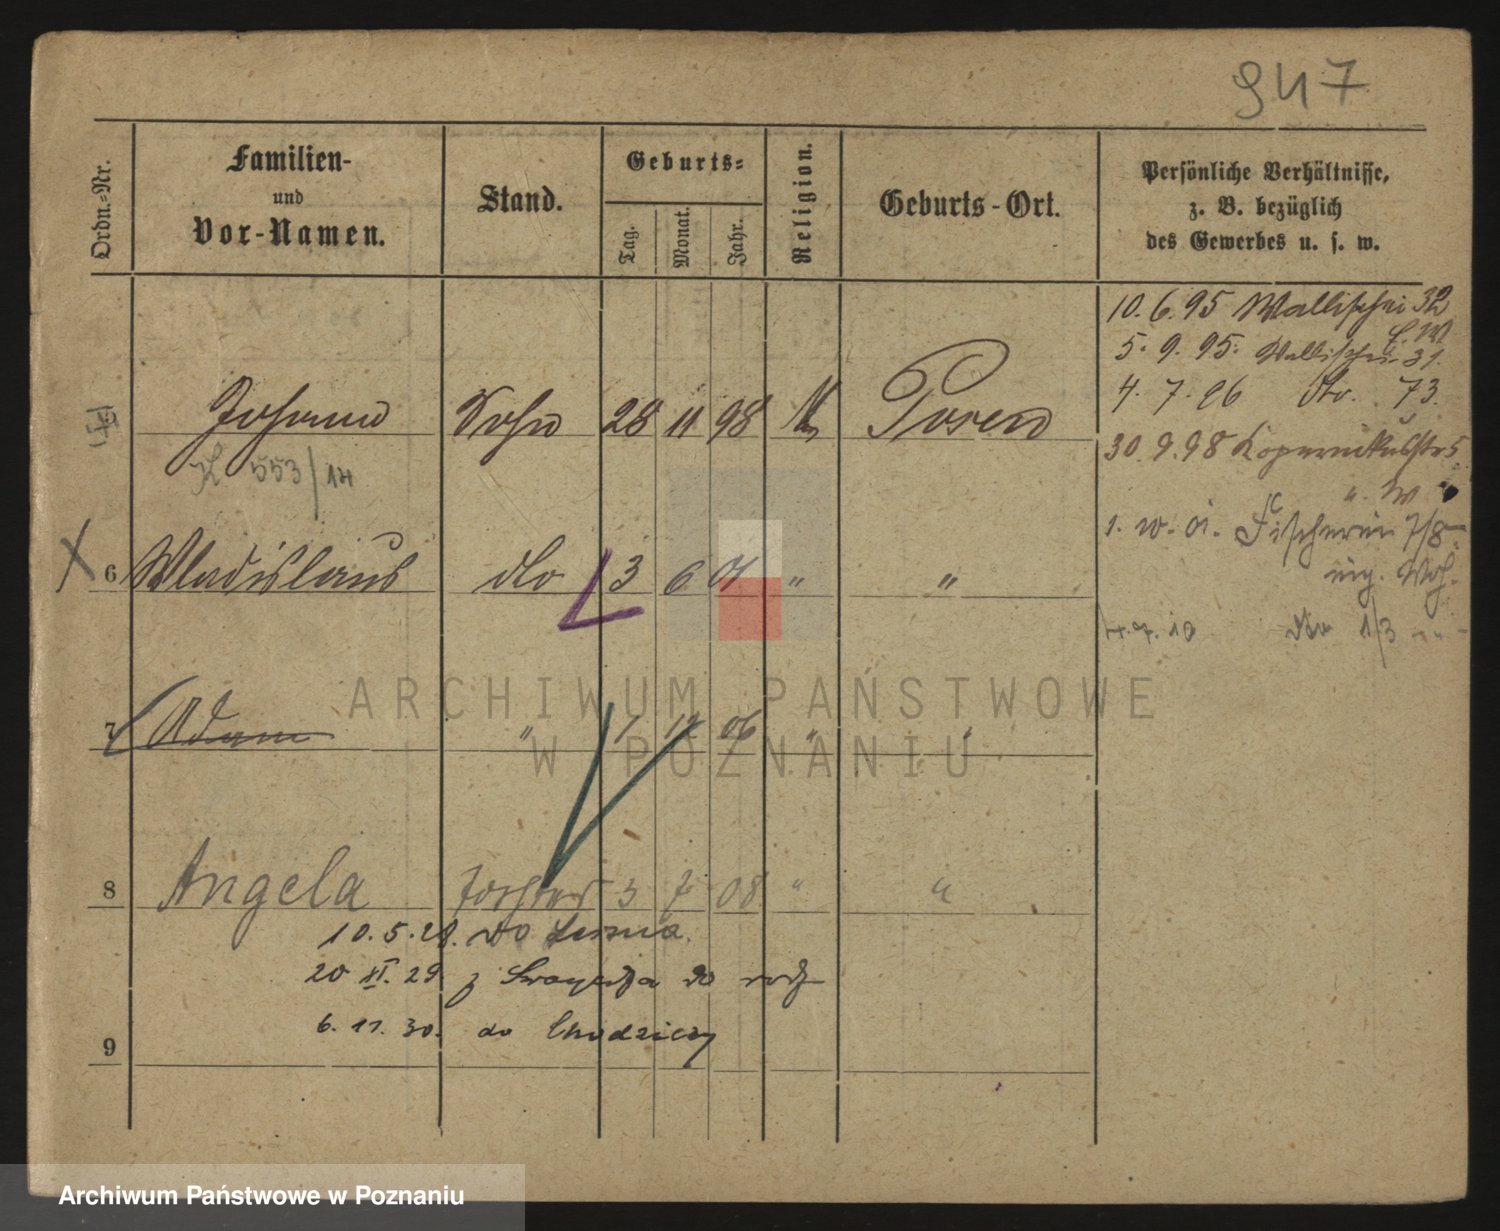 947
Ordn.-Nr.
Familien-
und
Vor-Namen.
Stand.
Geburts-
Tag.
Monat.
Jahr.
Religion.
Geburts-Ort.
Persönliche Verhältnisse,
z. B. bezüglich
des Gewerbes u. s. w.
10. 6. 95 Wallischei 32
5. 9. 95. Wallischei 31.
4. 7. 96 dto. 73.
Johann Sohn 28 11 98 Posen
30. 9. 98 Kopernikusstr 5
K 553/14
1. 10. 01. Fischerei 7/8
6 Wladislaus dto 3 6 01 " "
4. 7. 10 dto 1/3
ARCHIWUM PAŃSTWOWE
W POZNANIU
7 Adam " 1 12 06 " "
8 Angela Tochter 3 7 08 " "
10. 5. 28. do Leszna.
20 XI. 29 z
6. 11. 30. do Chodzieży
9
Archiwum Państwowe w Poznaniu